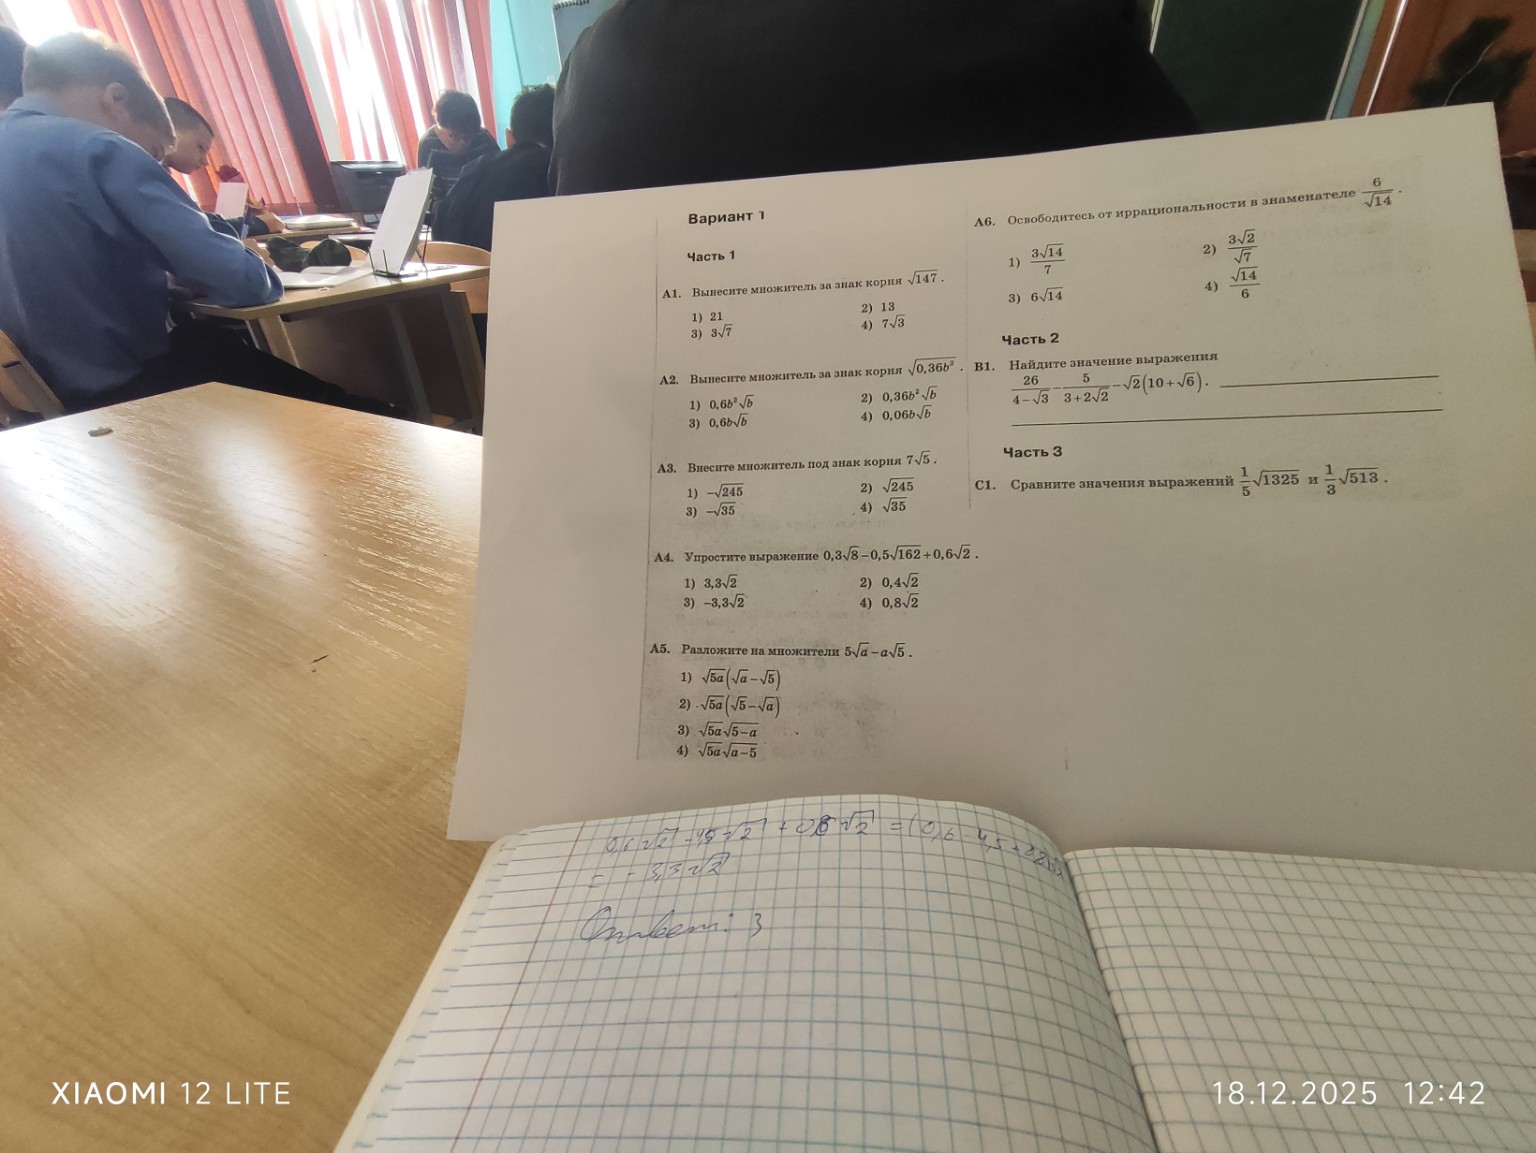 Вариант 1
Часть 1
А1. Вынесите множитель за знак корня √147 .
1) 21 2) 13
3) 3√7 4) 7√3
А2. Вынесите множитель за знак корня √0,36b³ .
1) 0,6b²√b 2) 0,36b²√b
3) 0,6b√b 4) 0,06b√b
А3. Внесите множитель под знак корня 7√5 .
1) −√245 2) √245
3) −√35 4) √35
А4. Упростите выражение 0,3√8−0,5√162+0,6√2 .
1) 3,3√2 2) 0,4√2
3) −3,3√2 4) 0,8√2
А5. Разложите на множители 5√a−a√5 .
1) √5a(√a−√5)
2) √5a(√5−√a)
3) √5a√5−a
4) √5a√a−5
А6. Освободитесь от иррациональности в знаменателе 6/√14 .
1) 3√14/7 2) 3√2/√7
3) 6√14 4) √14/6
Часть 2
В1. Найдите значение выражения
26/(4−√3) − 5/(3+2√2) − √2(10+√6) .
Часть 3
С1. Сравните значения выражений 1/5√1325 и 1/3√513 .
0,6√2 - 4,5√2 + 0,6√2 = (0,6 - 4,5 +
= - 3,3√2
Ответ: 3
XIAOMI 12 LITE
18.12.2025 12:42